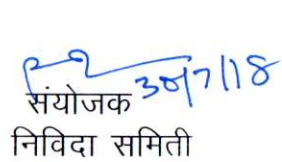 30/7/18
संयोजक
निविदा समिती